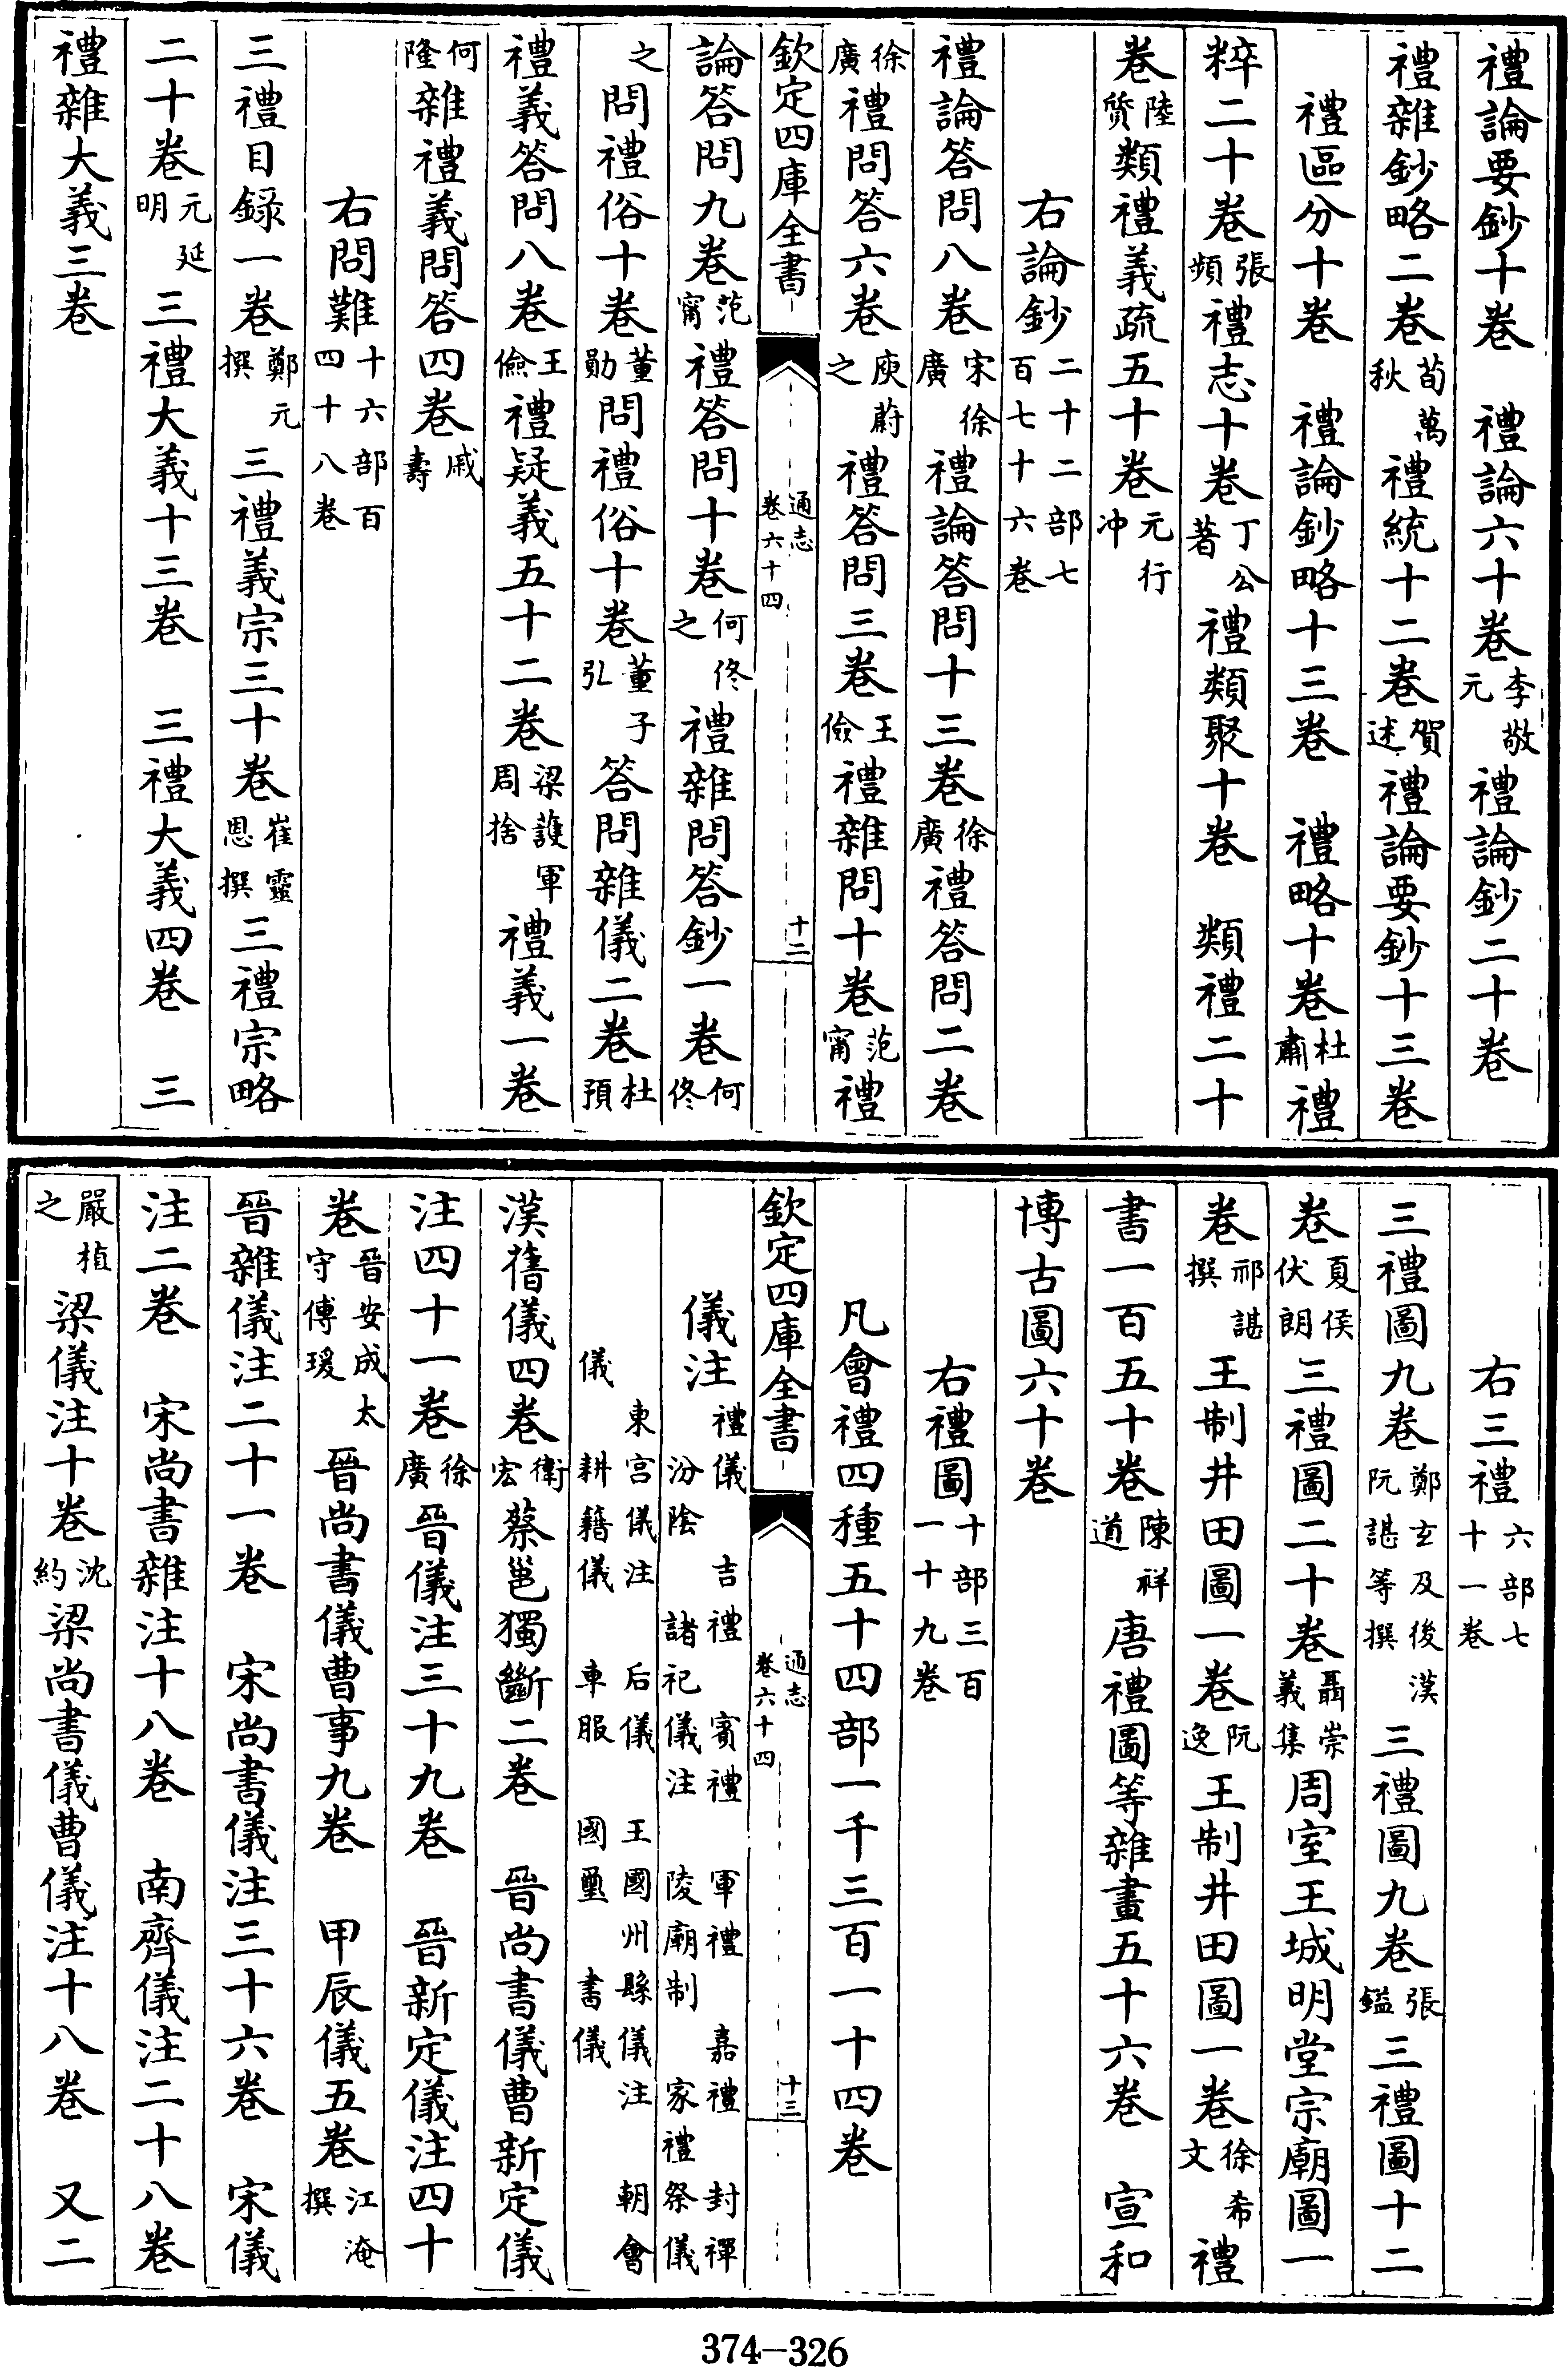 禮論要鈔十卷　禮論六十卷李敬元禮論鈔二十卷
禮雜鈔略二卷荀萬秋禮統十二卷賀述禮論要鈔十三卷
禮區分十卷　禮論鈔略十三卷　禮略十卷杜肅禮
粹二十卷張頻禮志十卷丁公著禮類聚十卷　類禮二十
卷陸贄類禮義疏五十卷元行沖
右論鈔二十二部七百七十六卷
禮論答問八卷宋徐廣禮論答問十三卷徐廣禮答問二卷
徐廣禮問答六卷庾蔚之禮答問三卷王儉禮雜問十卷范甯禮
欽定四庫全書
通志卷六十四
十二
論答問九卷范甯禮答問十卷何佟之禮雜問答鈔一卷何佟
之問禮俗十卷董勛問禮俗十卷董子弘答問雜儀二卷杜預
禮義答問八卷王儉禮疑義五十二卷梁護軍周捨禮義一卷
何隆雜禮義問答四卷戚壽
右問難十六部百四十八卷
三禮目録一卷鄭元撰三禮義宗三十卷崔靈恩撰三禮宗略
二十卷元延明三禮大義十三卷　三禮大義四卷　三
禮雜大義三卷
右三禮六部七十一卷
三禮圖九卷鄭玄及後漢阮諶等撰三禮圖九卷張鎰三禮圖十二
卷夏侯伏朗三禮圖二十卷聶崇義集周室王城明堂宗廟圖一
卷祁諶撰王制井田圖一卷阮逸王制井田圖一卷徐希文禮
書一百五十卷陳祥道唐禮圖等雜畫五十六卷　宣和
博古圖六十卷
右禮圖十部三百一十九卷
凡會禮四種五十四部一千三百一十四卷
欽定四庫全書
通志卷六十四
十三
儀注禮儀　吉禮　賓禮　軍禮　嘉禮　封禪　汾陰　諸祀儀注　陵廟制　家禮祭儀
東宮儀注　后儀　王國州縣儀注　朝會儀　耕籍儀　車服　國璽　書儀
漢舊儀四卷衛宏蔡邕獨斷二卷　晉尚書儀曹新定儀
注四十一卷徐廣晉儀注三十九卷　晉新定儀注四十
卷晉安成太守傅瑗晉尚書儀曹事九卷　甲辰儀五卷江淹撰
晉雜儀注二十一卷　宋尚書儀注三十六卷　宋儀
注二卷　宋尚書雜注十八卷　南齊儀注二十八卷
嚴植之梁儀注十卷沈約梁尚書儀曹儀注十八卷　又二
374-326